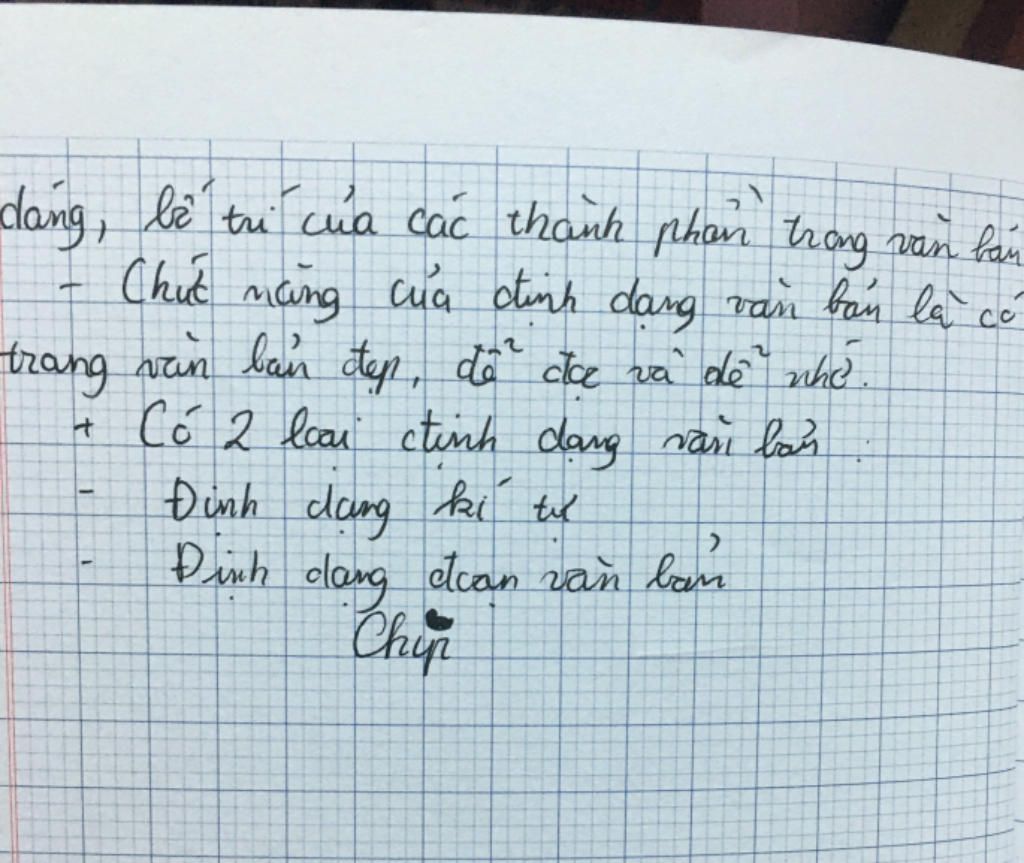 dáng, bố trí của các thành phần trong văn bản
- Chức năng của định dạng văn bản là có
trang văn bản đẹp, dễ đọc và dễ nhớ.
+ Có 2 loại định dạng văn bản :
- Định dạng kí tự
- Định dạng đoạn văn bản